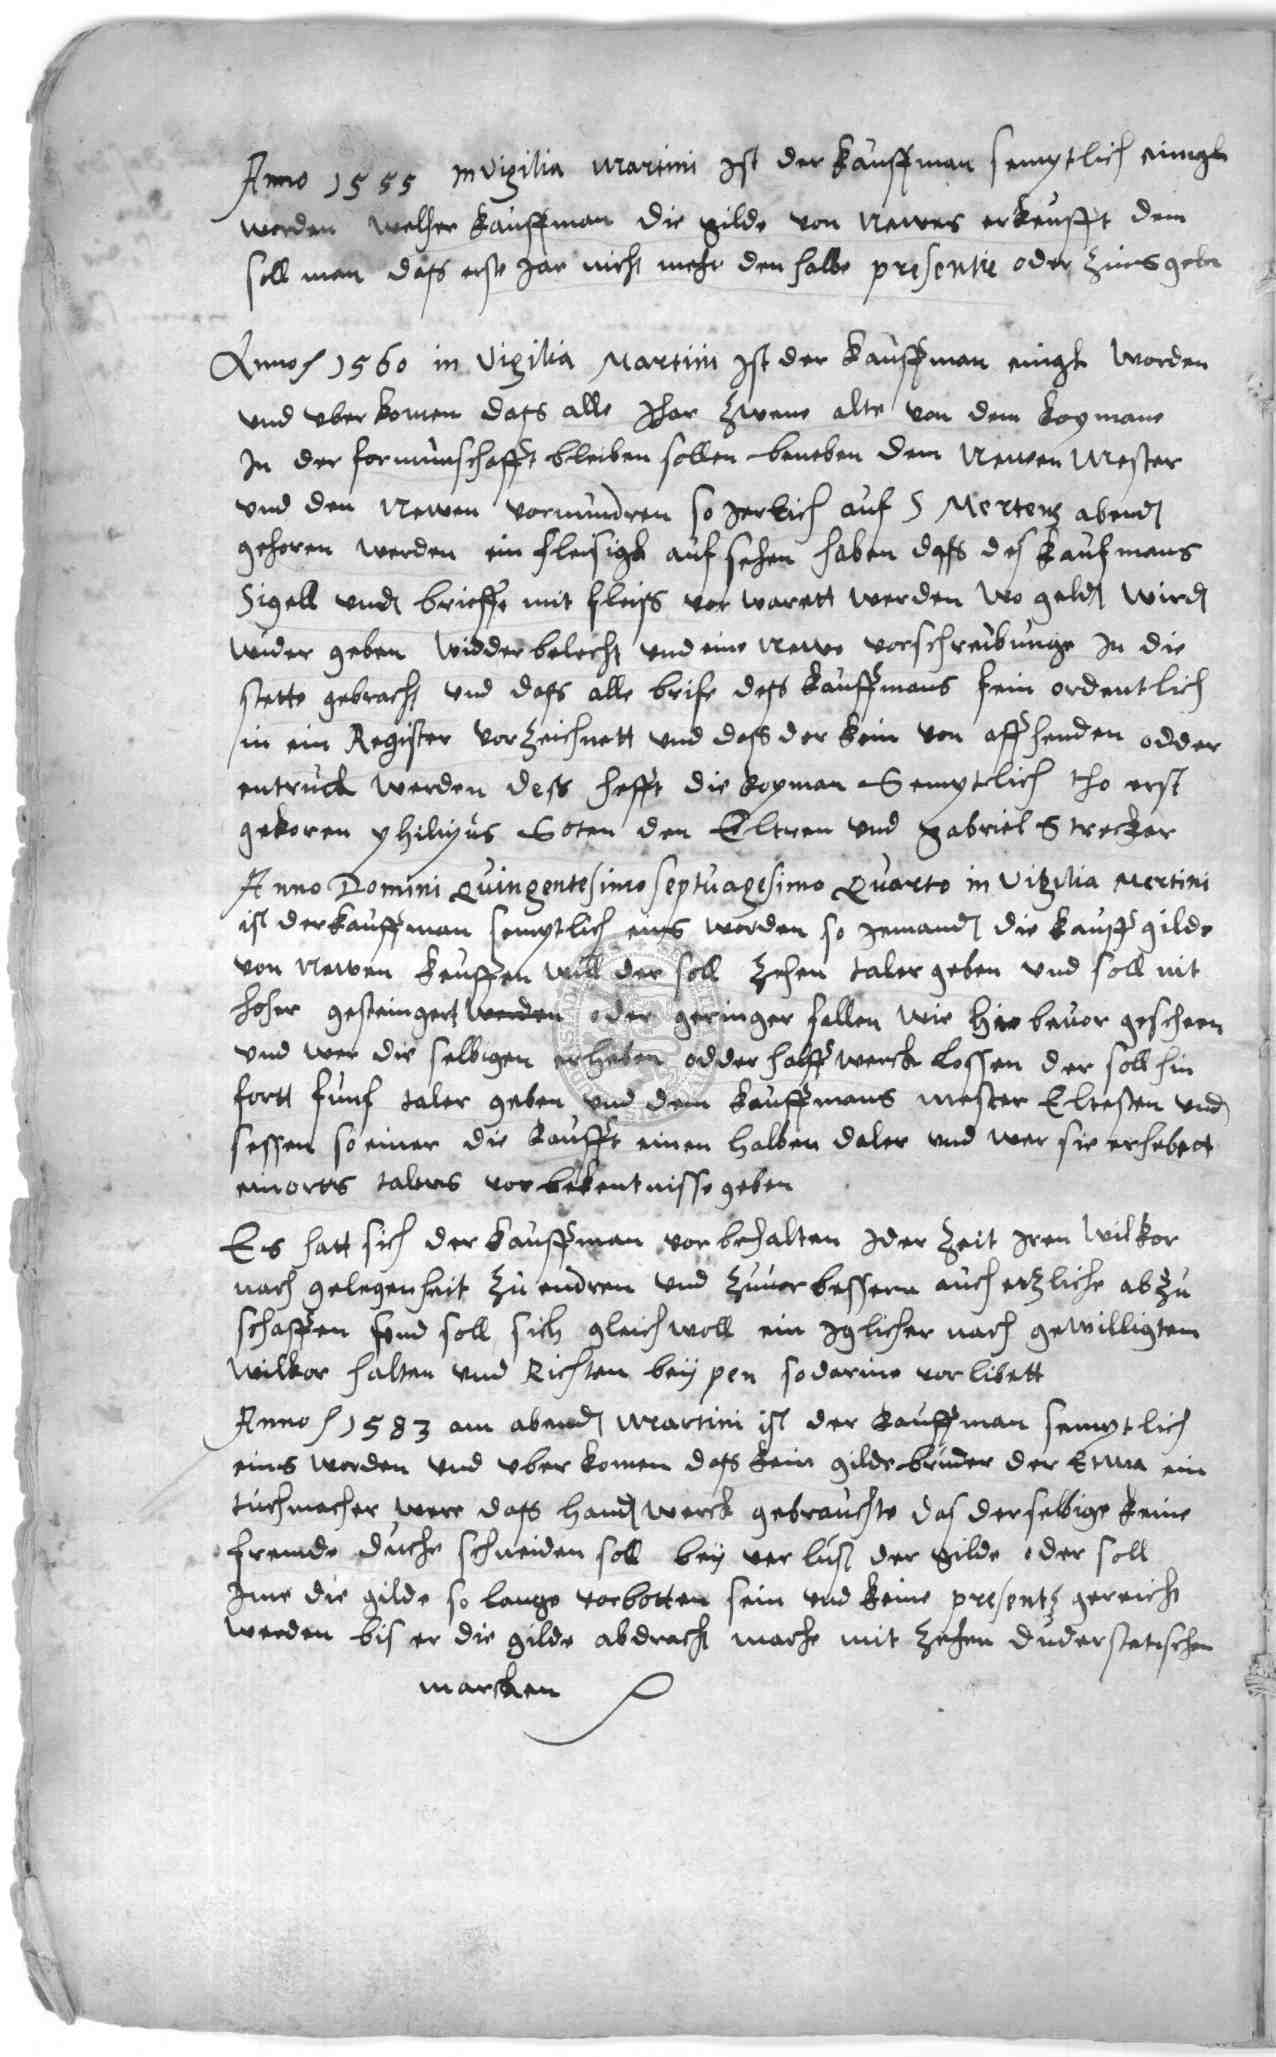 Anno 1555 in vigilia Martini ist der kauffman semptlich einigk
worden welcher kauffman die gilde von Newes erkeufft dem
soll man dass erste Jar nicht mehr den halbe presentie oder zinss geben
Anno 1560 in vigilia Martini ist der kauffman einigk worden
vnd vber komen dass alle Jhar zwene alte von dem kopmane
In der formunschafft bleiben sollen beneben dem Newen Mester
vnd den Newen vormundren so Jerlich auf S Mertens abendt
gekoren werden ein fleisigk aufsehen haben dass des kaufmans
Sigell vnd brieffe mit fleiss vor warett werden wo geldt wirdt
wider geben widder belecht vnd eine Newe vorschreibunge In die
stette gebracht vnd dass alle brife dess kauffmans fein ordentlich
in ein Register vorzeichnett vnd dass der kein von affhenden odder
entruckt werden dess hefft die kopman Semptlich tho erst
gekoren philipus Soten den Eltren vnd gabriel Strecker
Anno Domini Quingentesimo septuagesimo Quarto in vigilia Mertini
ist der kauffman semptlich eins worden so Jemandt die kauffgilde
von Newen keuffen will der soll zehen taler geben vnd soll nit
hoher gesteingert werden oder geringer fallen wie hir beuor gescheen
vnd wer die selbigen erheben odder halff werck lossen der soll hin
fortt funf taler geben vnd dem kauffmans mester Eltesten vnd
sessen so einer die kaufft einen halben daler vnd wer sie erhebett
ein orts talers vor bekentnisse geben
Es hatt sich der kauffman vor behalten Jder zeit Iren wilkor
nach gelegenheit zu endren vnd zuuor bessern auch etzliche abzu
schaffen vnd soll sich gleich woll ein Jglicher nach gewilligtem
wilkor halten vnd Richten beij pen so darine vorlibett
Anno 1583 am abendt Martini ist der kauffman semptlich
eins worden vnd vber komen dass kein gildebruder der Etwa ein
tuchmacher were dass handtwerck gebrauchte das derselbige keine
fremde duche schneiden soll beij verlust der gilde oder soll
Ime die gilde so lange vorbotten sein vnd keine presentz gereicht
werden bis er die gilde abdracht mache mit zehen duderstatischen
marcken